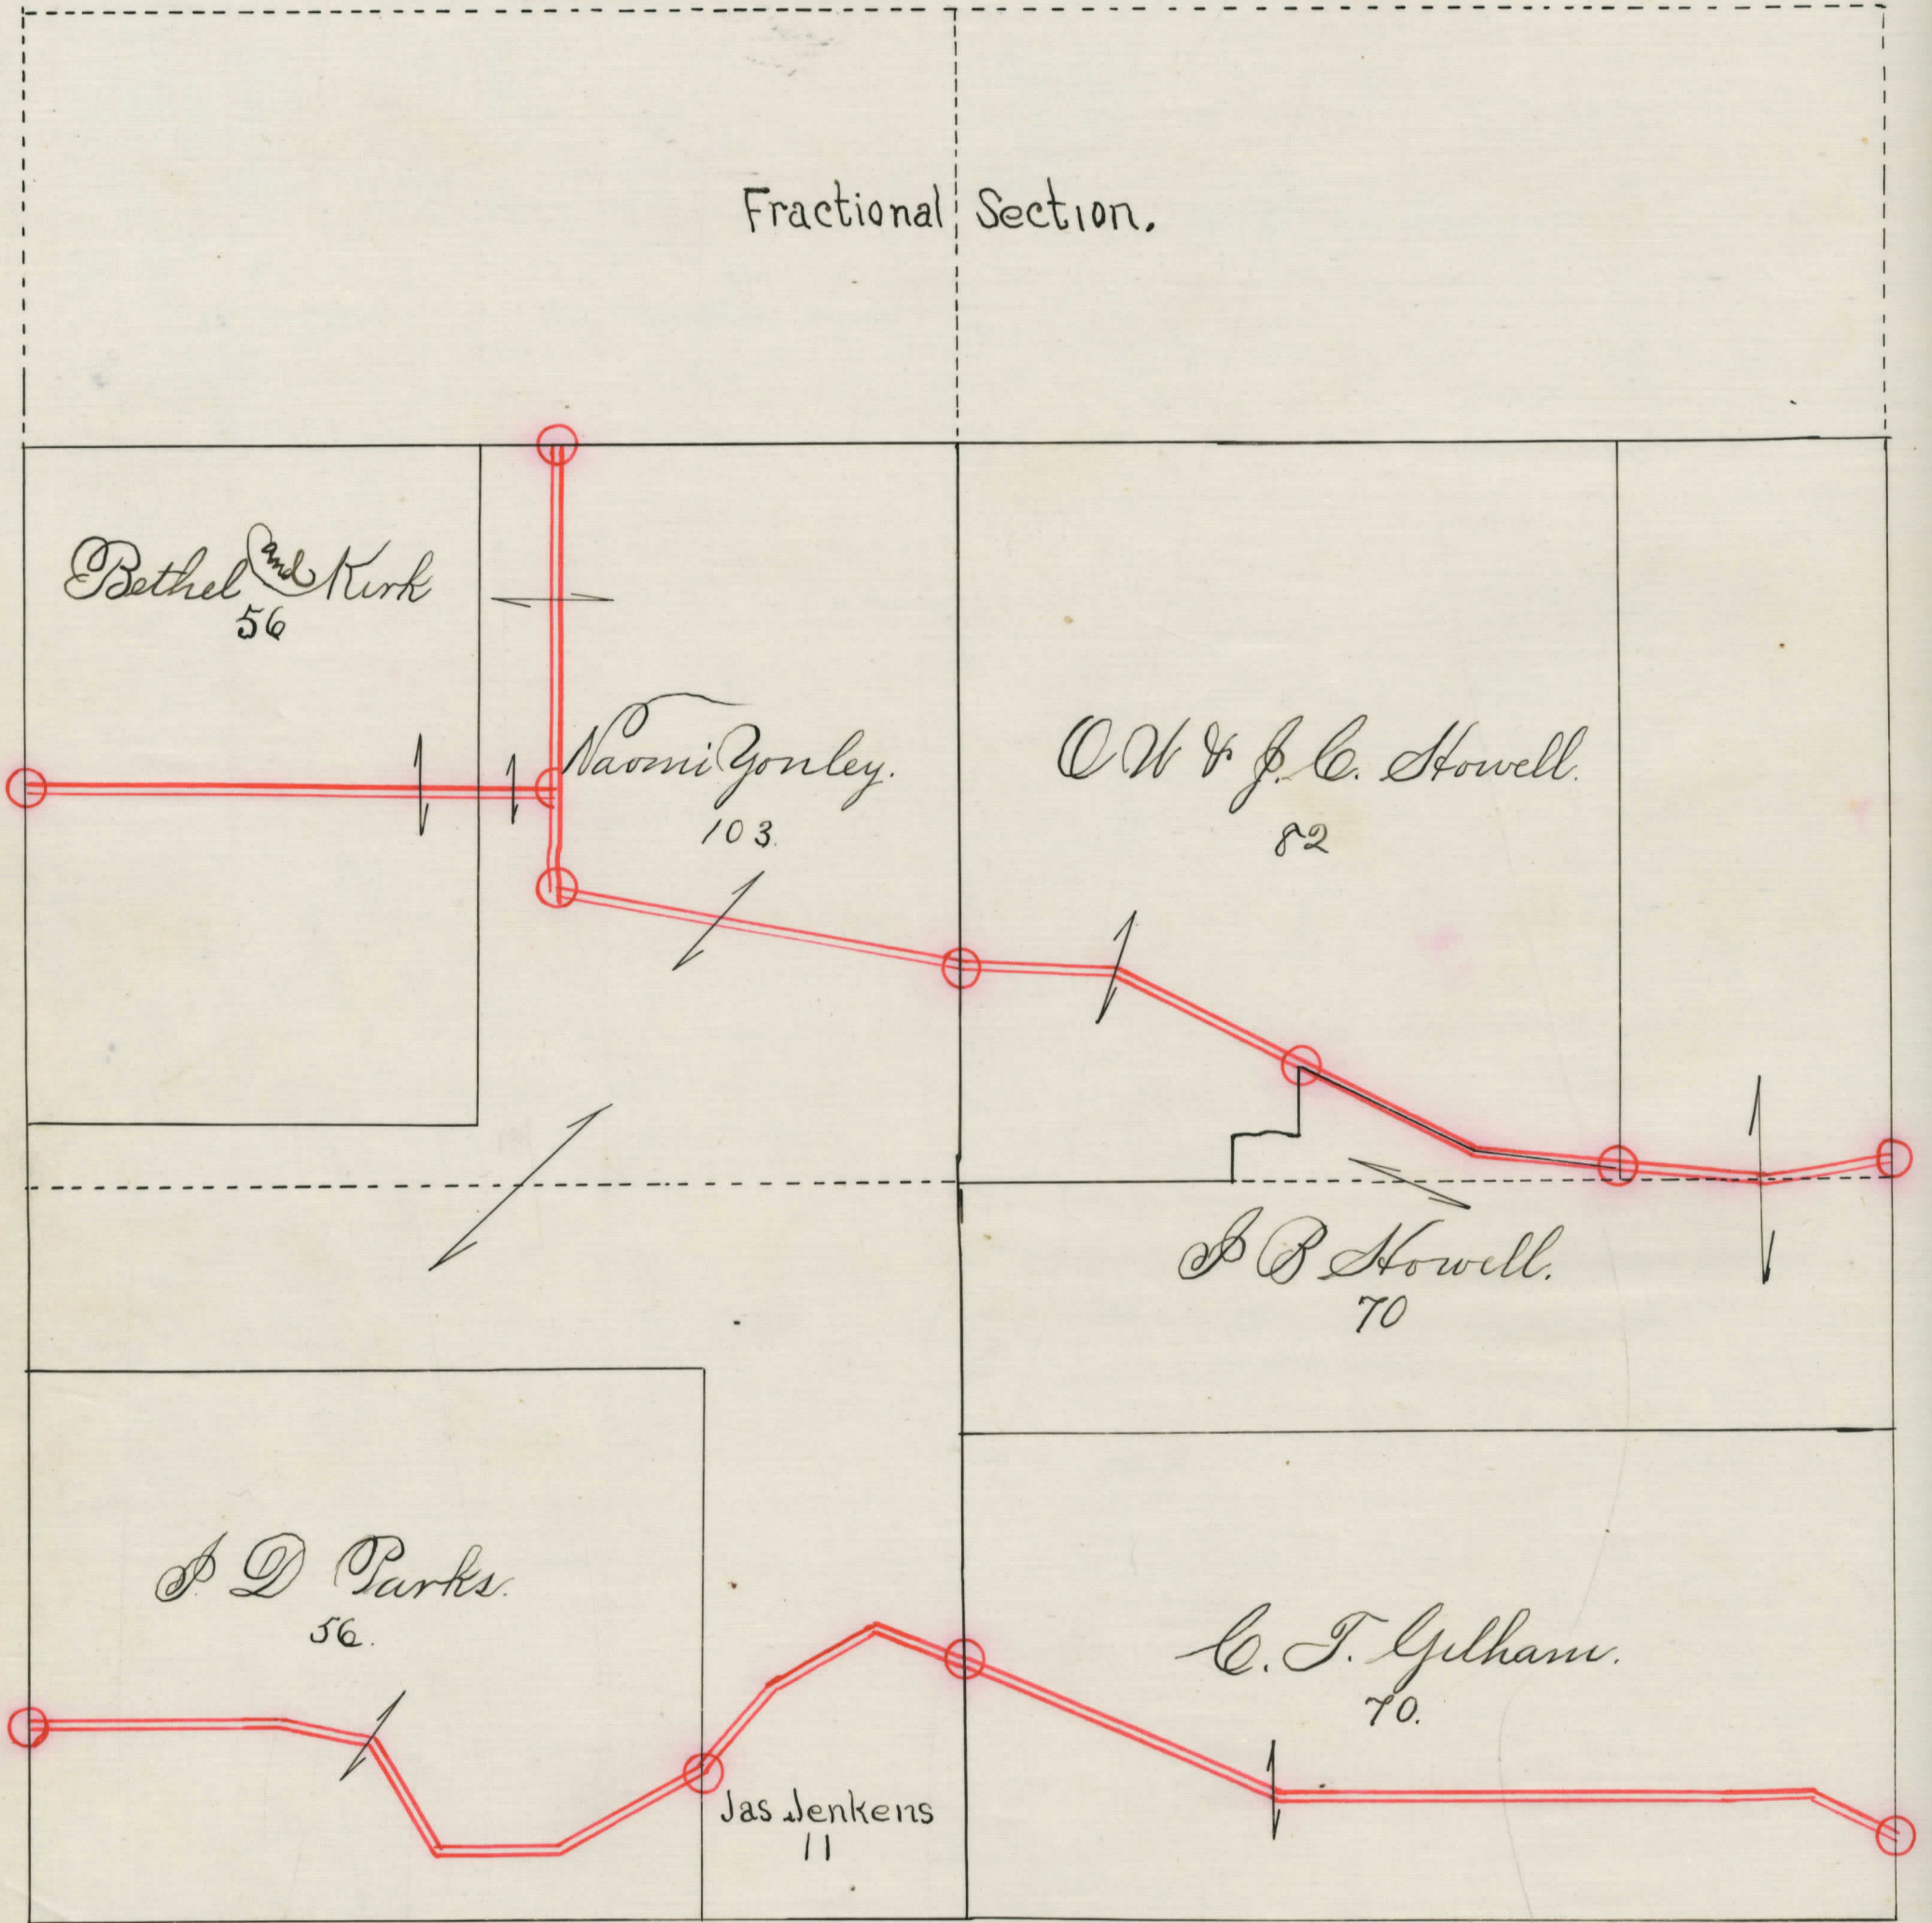 Fractional Section.
Bethel and Kirk
56
Naomi Yonley.
103.
O W & J. C. Howell.
82
J B Howell.
70
J D Parks.
56.
C. T. Gilham.
70.
Jas Jenkens
11